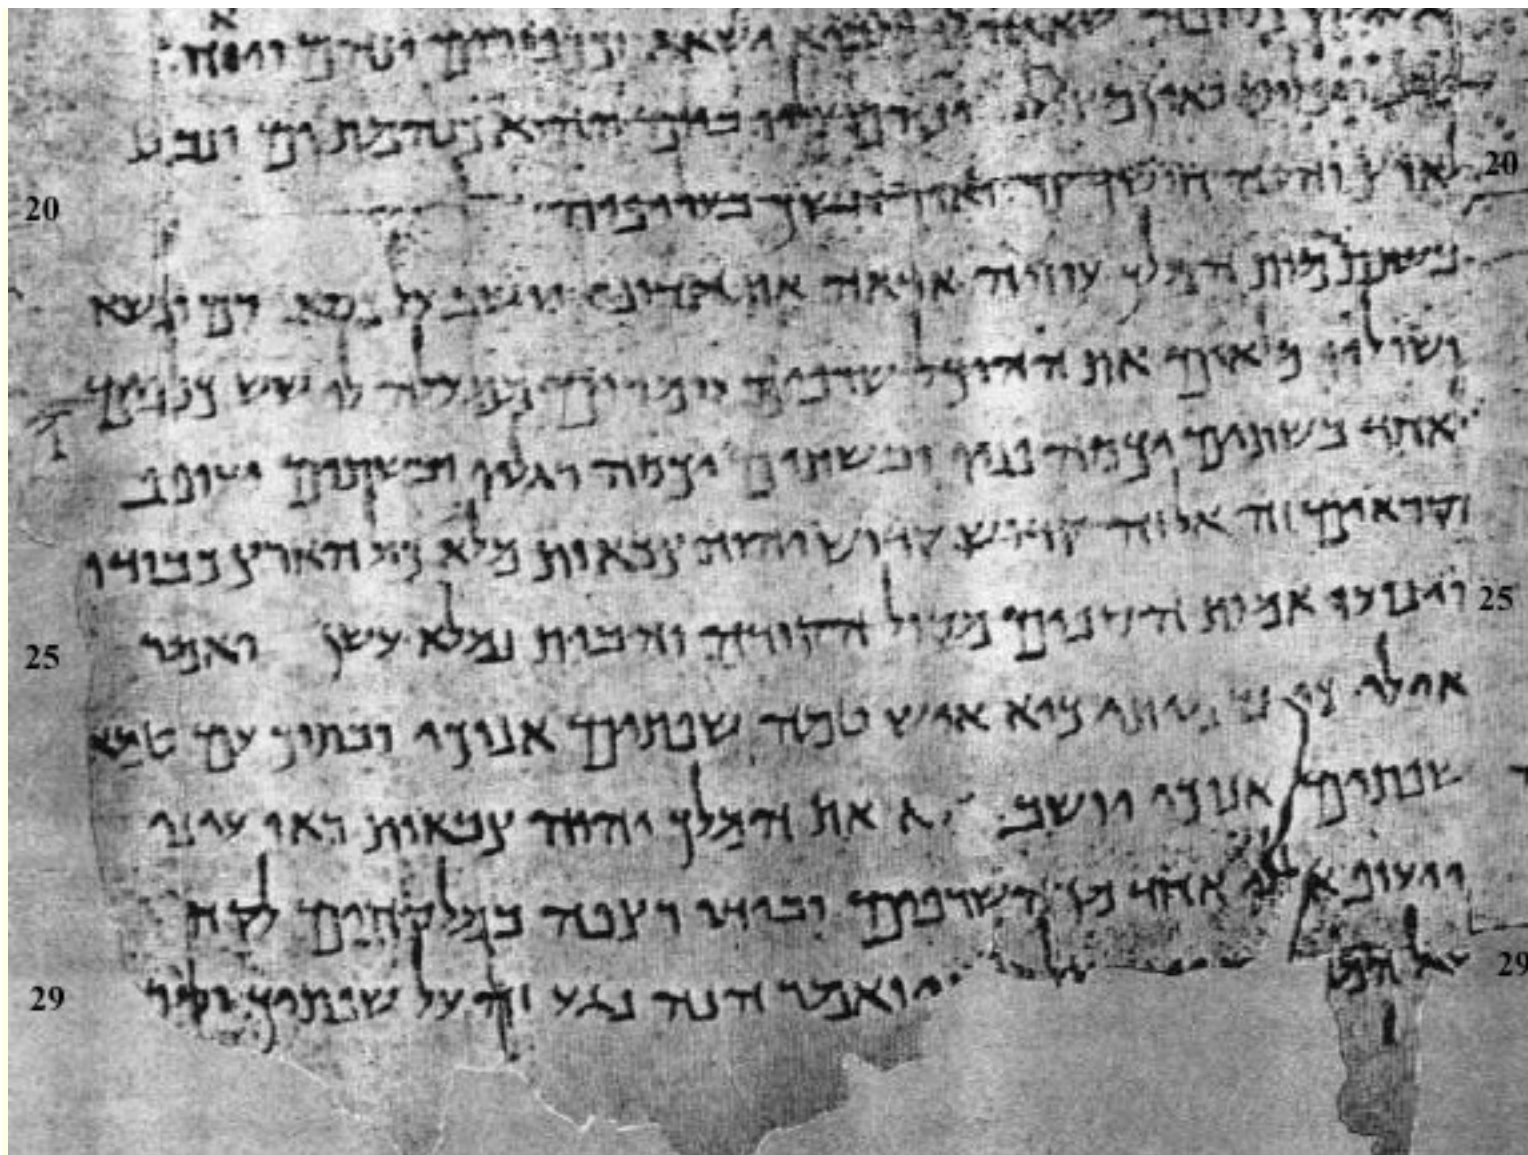 ישאג וככפירים ינהם ויאחז
ואין מציל וינהם עליו ביום ההוא כנהמת ים ונבט
20 ארץ והנה חושך צר ואור חשך בעריפיה 20
בשנת מות המלך עוזיה אראה את אדוני יושב על כסא רם ונשא
ושוליו מלאים את ההיכל שרפים עומדים ממעלה לו שש כנפים
לאחד בשתים יכסה פניו ובשתים יכסה רגליו ובשתים יעופף
וקראים זה אל זה קדוש קדוש יהוה צבאות מלא כול הארץ כבודו
25 וינועו אמות הספים מקול הקורה והבית נמלא עשן ואמר 25
אילי כי נדמיתי כיא איש טמה שפתים אנוכי ובתוך עם טמא
שפתים אנוכי יושב את המלך יהוה צבאות ראו עיני
ויעופ אלי אחד מן השרפים ובידו רצפה במלקחים לקח
29 מעל המז ויאמר הנה נגע זה על שפתיך 29